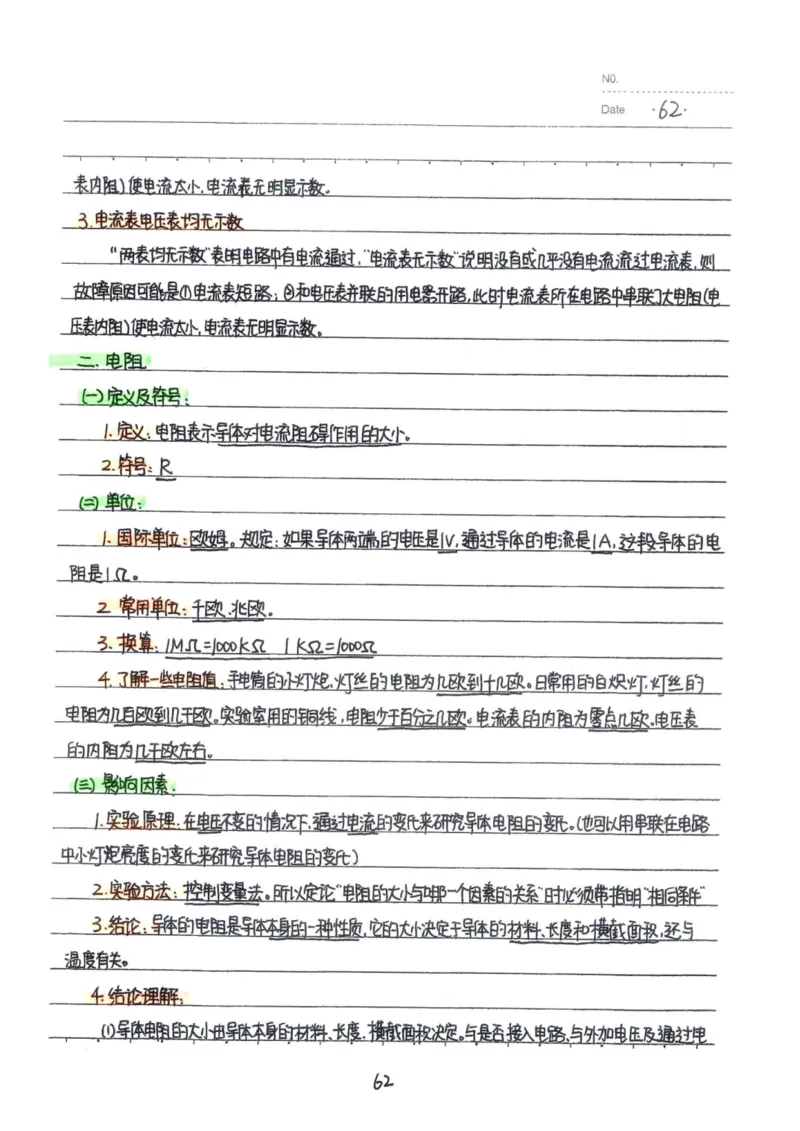 NO.
Date ·62·
表内阻)使电流太小,电流表无明显示数。
3.电流表电压表均无示数
“两表均无示数”表明电路中有电流通过,“电流表无示数”说明没有或几乎没有电流流过电流表,则
故障原因可能是①电流表短路;②和电压表并联的用电器开路,此时电流表所在电路中串联了大电阻(电
压表内阻)使电流太小,电流表无明显示数。
二.电阻
(一)定义及符号:
1.定义:电阻表示导体对电流阻碍作用的大小。
2.符号:R
(二)单位:
1.国际单位:欧姆。规定:如果导体两端的电压是1V,通过导体的电流是1A,这段导体的电
阻是1Ω。
2.常用单位:千欧、兆欧。
3.换算:1MΩ=1000KΩ 1KΩ=1000Ω
4.了解一些电阻值:手电筒的小灯炮,灯丝的电阻为几欧到十几欧。日常用的白炽灯,灯丝的
电阻为几百欧到几千欧。实验室用的铜线,电阻少于百分之几欧。电流表的内阻为零点几欧。电压表
的内阻为几千欧左右。
(三)影响因素.
1.实验原理:在电压不变的情况下,通过电流的变化来研究导体电阻的变化。(也可以用串联在电路
中小灯炮亮度的变化来研究导体电阻的变化)
2.实验方法:控制变量法。所以定论“电阻的大小与哪一个因素的关系”时必须带指明“相同条件”
3.结论:导体的电阻是导体本身的一种性质,它的大小决定于导体的材料、长度和横截面积,还与
温度有关。
4.结论理解:
(1)导体电阻的大小由导体本身的材料、长度.横截面积决定。与是否接入电路、与外加电压及通过电
62